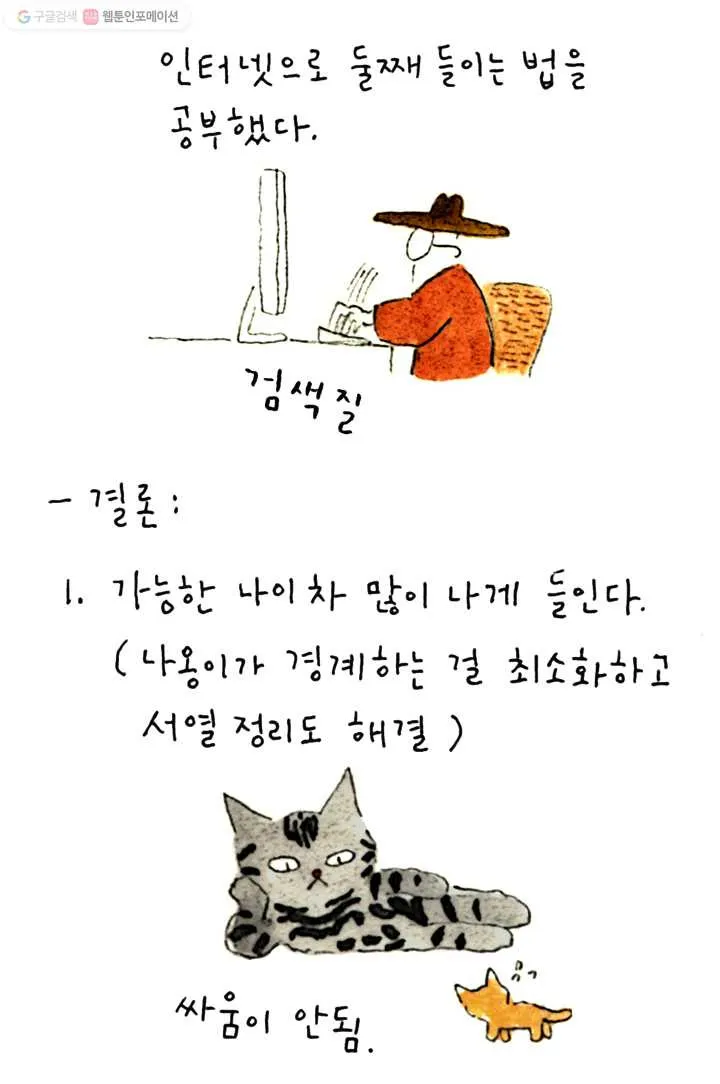 구글검색 웹툰인포메이션
인터넷으로 둘째 들이는 법을
공부했다.
검색질
- 결론 :
1. 가능한 나이차 많이 나게 들인다.
(나옹이가 경계하는 걸 최소화하고
서열 정리도 해결)
싸움이 안됨.